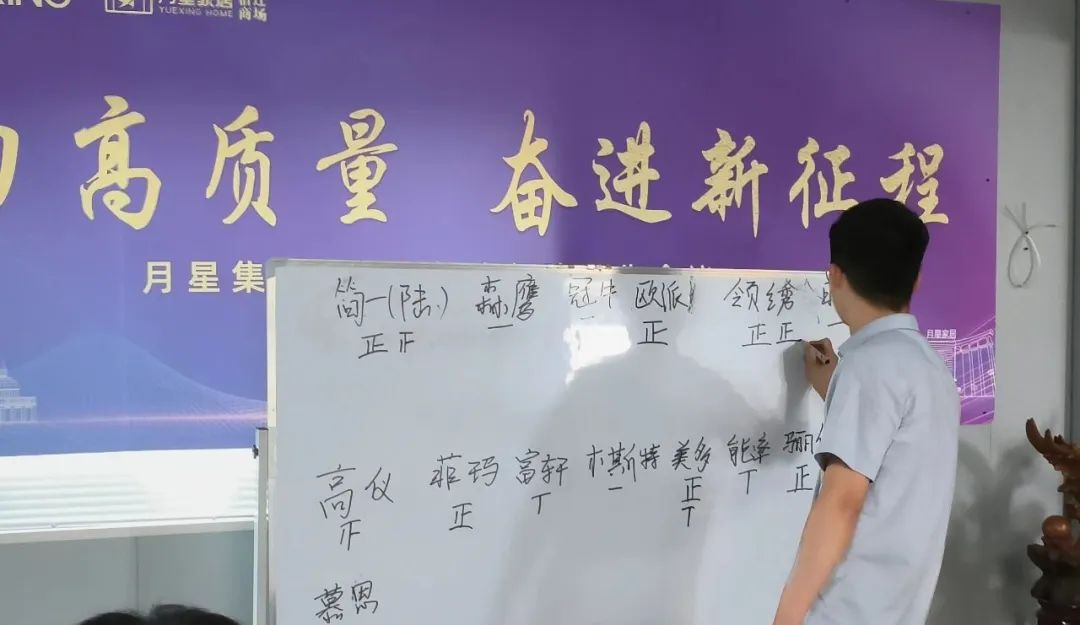 月星家居
YUEXING HOME
商场
高质量 奋进新征程
月星集
简一(陆.) 森鹰 冠牛 欧派 领绣
正 正 一 一 正 正 正 一
高仪 菲玛 富轩 木斯特 美多 能率 骊
正 丅 一 正 丅 正
丅
慕思
月星家居